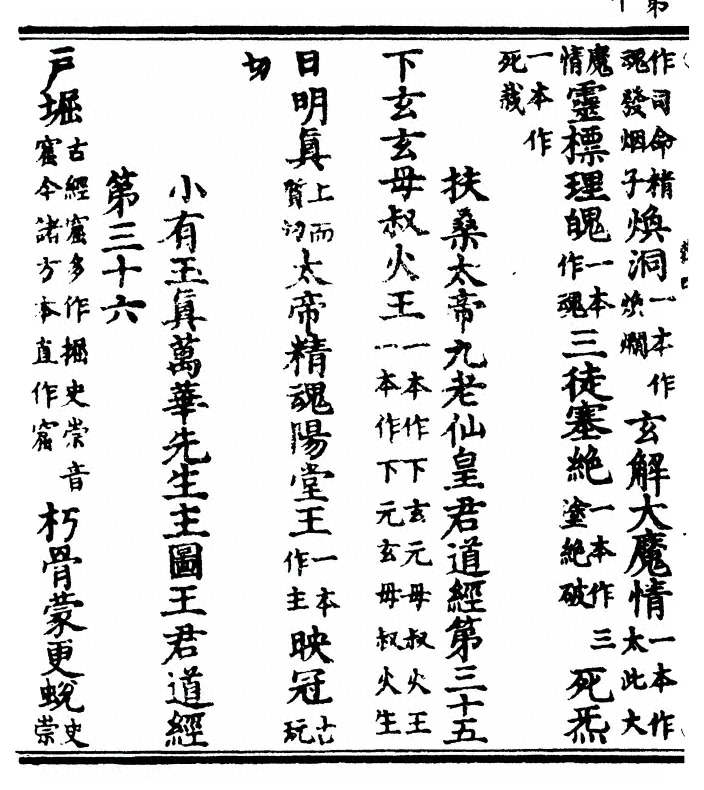 作司命精魂發烟子煥洞一本作煥爛玄解大魔情一本作太此大
魔情靈標理魄一本作魂三徒塞絶一本作三塗絶破死炁
一本作死烖
扶桑太帝九老仙皇君道經第三十五
下玄玄母叔火王一本作下玄元母叔火王一本作下元玄母叔火生
日明眞上而賢切太帝精魂陽堂王一本作主映冠古玩
切
小有玉眞萬華先生主圖王君道經
第三十六
戸堀古經窟多作掘史崇音窟今諸方本直作窟朽骨蒙更蛻史崇